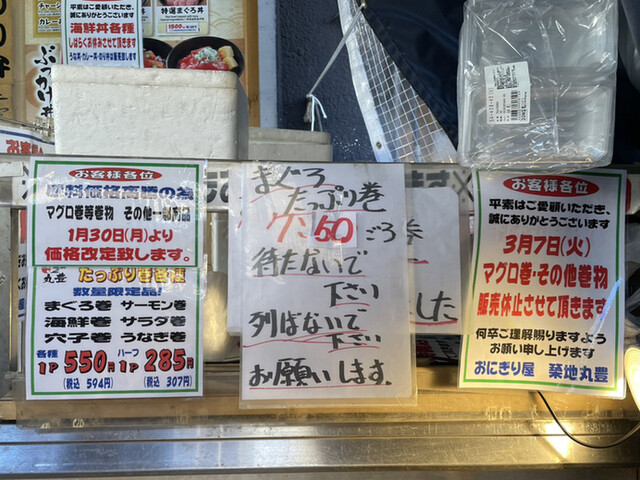 平素はご愛顧いただき、
誠にありがとうございます
海鮮丼各種
しばらくお休みさせて頂きます
うな丼・カレー丼・のり弁は販売します
特選まぐろ丼
お客様各位
原料価格高騰の為
マグロ巻等巻物 その他一部商品
1月30日(月)より
価格改定致します。
丸豊
たっぷり巻各種
数量限定品!
まぐろ巻 サーモン巻
海鮮巻 サラダ巻
穴子巻 うなぎ巻
各種 ハーフ
1P 550円 1P 285円
(税込 594円) (税込 307円)
まぐろ
たっぷり巻
50ごろ
待たないで
下さい
列ばないで
下さい
お願いします。
お客様各位
平素はご愛顧いただき、
誠にありがとうございます
3月7日(火)
マグロ巻・その他巻物
販売休止させて頂きます
何卒ご理解賜りますよう
お願い申し上げます
おにぎり屋 築地丸豊